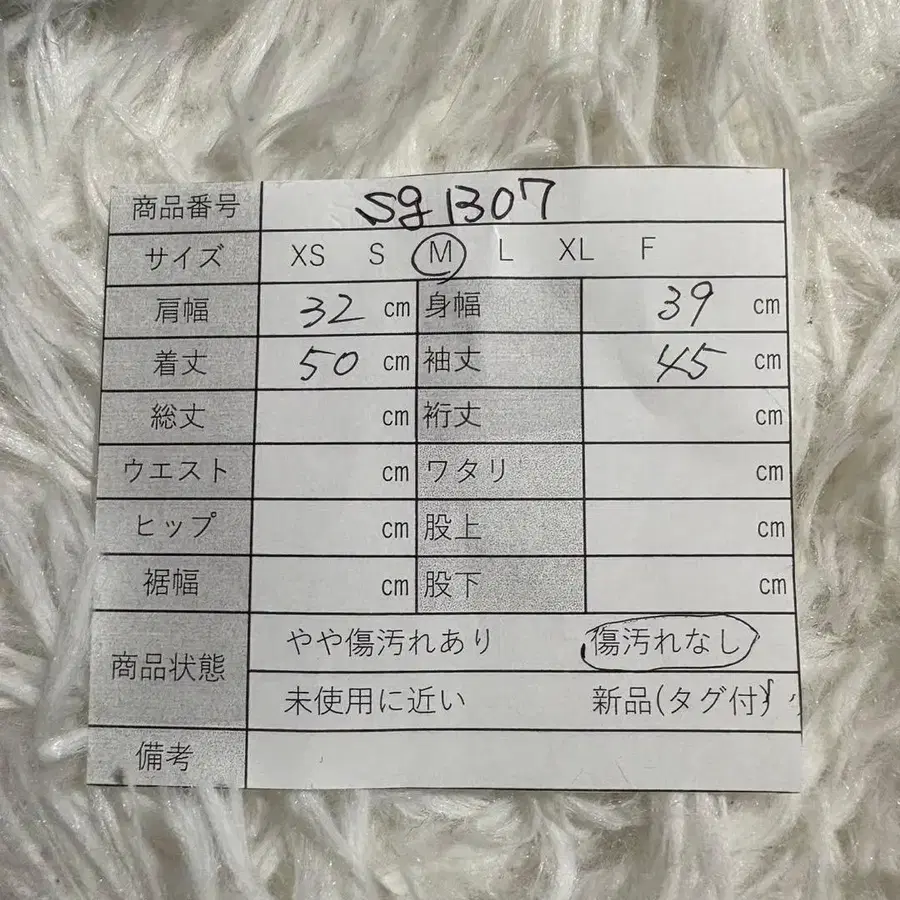 商品番号 sg1307
サイズ XS S M L XL F
肩幅 32 cm 身幅 39 cm
着丈 50 cm 袖丈 45 cm
総丈 cm 裄丈 cm
ウエスト cm ワタリ cm
ヒップ cm 股上 cm
裾幅 cm 股下 cm
商品状態 やや傷汚れあり 傷汚れなし
未使用に近い 新品(タグ付)
備考